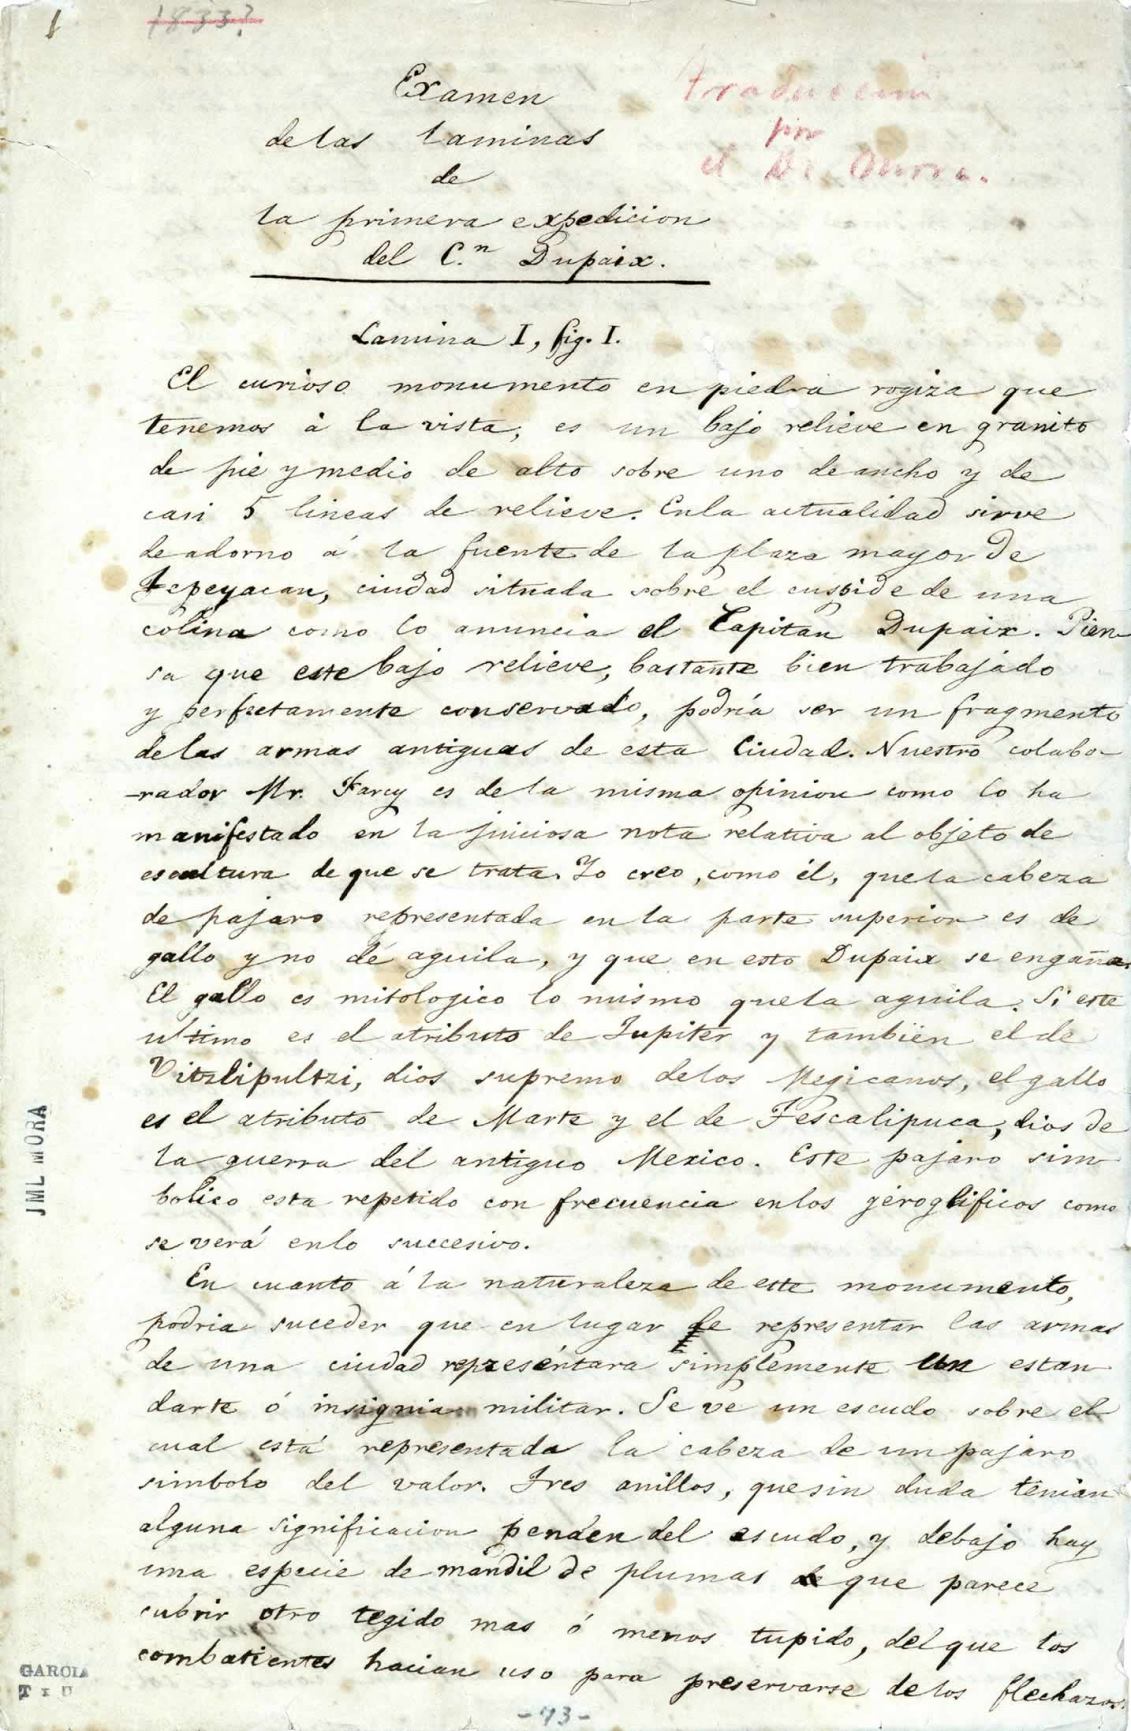 1
1833?
Traduccion
por
el Dr.
Examen
de las laminas
de
la primera expedicion
del C.n Dupaix.
Lamina I, fig. I.
El curioso monumento en piedra rogiza que
tenemos á la vista, es un bajo relieve en granito
de pie y medio de alto sobre uno de ancho y de
casi 5 lineas de relieve. En la actualidad sirve
de adorno á la fuente de la plaza mayor de
Tepeyacan, ciudad situada sobre el cuspide de una
colina como lo anuncia el Capitan Dupaix. Pien-
sa que este bajo relieve, bastante bien trabajado
y perfectamente conservado, podría ser un fragmento
de las armas antiguas de esta Ciudad. Nuestro colabo-
-rador Mr. Farcy es de la misma opinion como lo ha
manifestado en la juiciosa nota relativa al objeto de
escultura de que se trata. Yo creo, como él, que la cabeza
de pajaro representada en la parte superior es de
gallo y no de aguila, y que en esto Dupaix se engaña.
El gallo es mitologico lo mismo que la aguila. Si este
ultimo es el atributo de Jupiter y tambien el de
Vitzlipultzi, dios supremo de los Megicanos, el gallo
es el atributo de Marte y el de Tescalipuca, dios de
la guerra del antiguo Mexico. Este pajaro sim-
bolico esta repetido con frecuencia en los géroglificos como
se verá en lo succesivo.
En cuanto á la naturaleza de este monumento,
podria suceder que en lugar de representar las armas
de una ciudad representara simplemente un estan
darte ó insignia militar. Se ve un escudo sobre el
cual está representada la cabeza de un pajaro
simbolo del valor. Tres anillos, que sin duda tenian
alguna significacion penden del escudo, y debajo hay
una especie de mandil de plumas que parece
cubrir otro tegido mas ó menos tupido, del que los
combatientes hacian uso para preservarse de los flechazos.
JML MORA
GARCIA
-73-